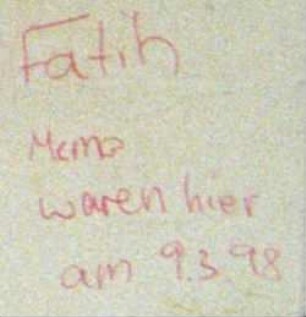 Fatih
Memo
waren hier
am 9.3.98